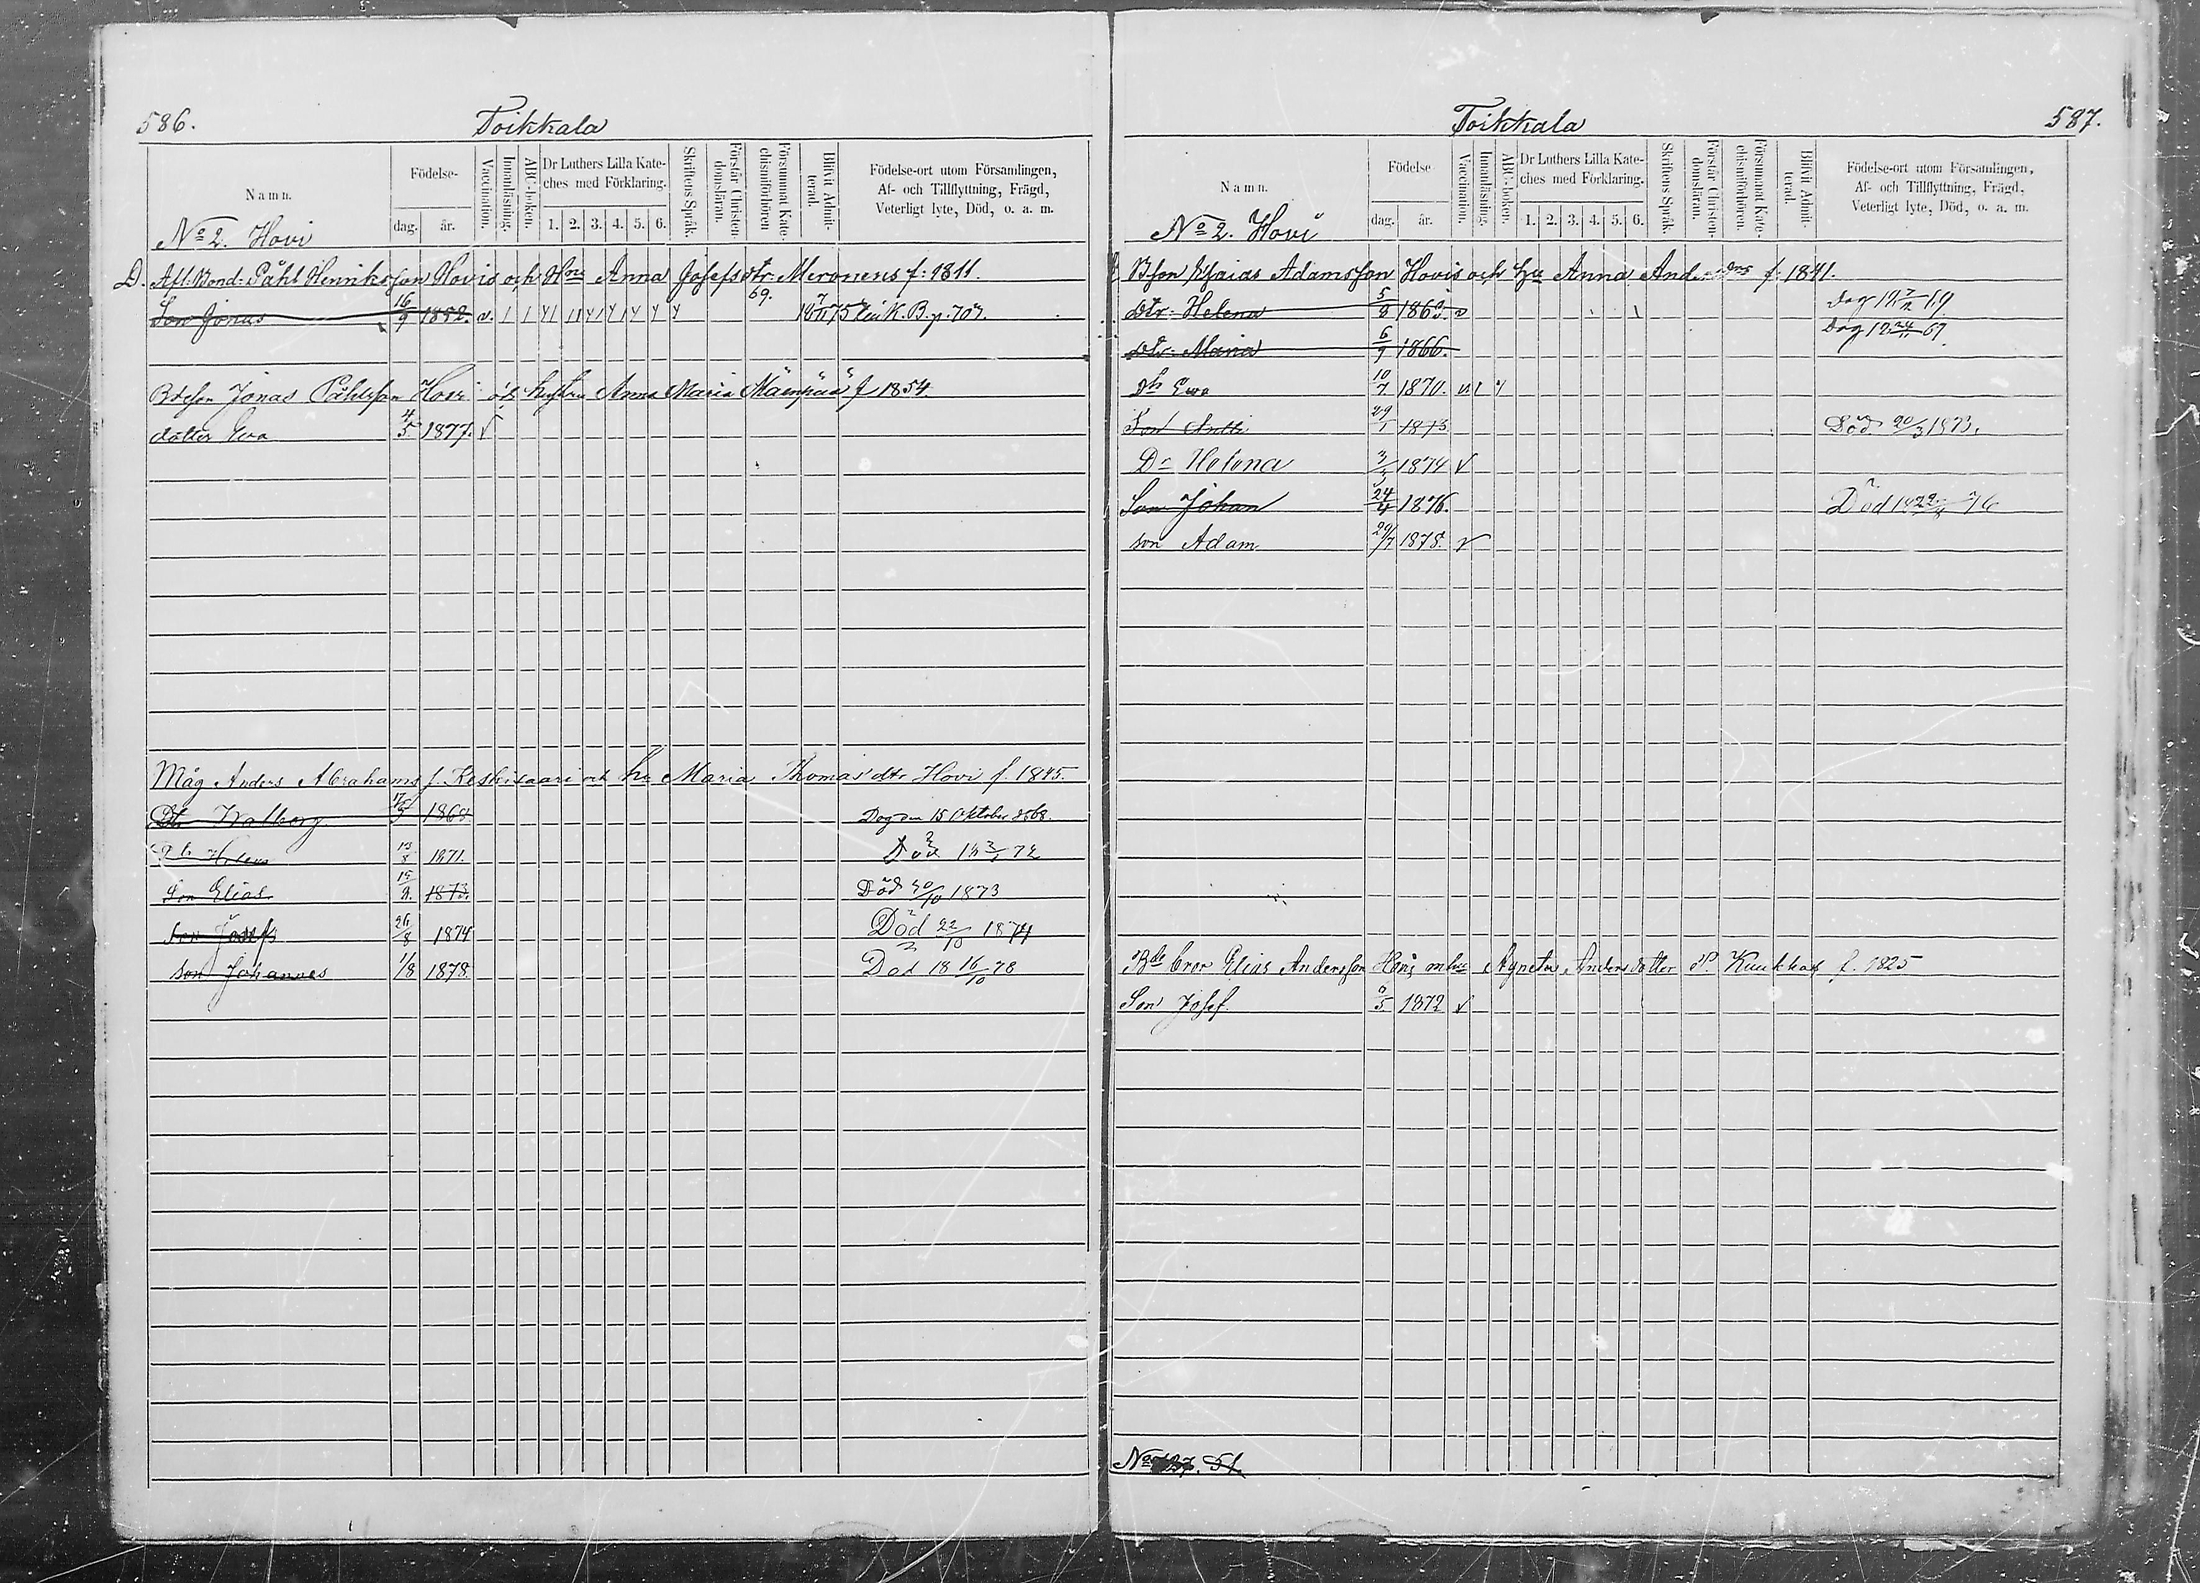 586.
Toikkala
Namn.
Födelse-
dag.
år.
Vaccination.
Innanläsning.
ABC-boken.
Dr Luthers Lilla Kate-
ches med Förklaring.
1. 2. 3. 4. 5. 6.
Skriftens Språk.
Förstår Christen-
domsläran.
Försummat Kate-
chismiförhören
Blifvit Admit-
terad.
Födelse-ort utom Församlingen,
Af- och Tillflyttning, Frägd,
Veterligt lyte, Död, o. a. m.
No 2. Hovi
D. Afl. Bond. Påhl Henriksson Hovis och Hus Anna Josefsdtr Meronens f. 1811.
Son Jonas 16/9 1852. v. 69. 18 7/11 75 K. B. p. 707.
Bdeson Jonas Påhlsson Hovi och hustru Anna Maria Mäenpää f 1854.
dotter Eva 4/5 1877. v
Måg Anders Abrahams s. Keskisaari och hu Maria Thomas dtr Hovi f. 1845.
Dtr Walborg 1868. Dog den 15 Oktober 1868.
Dtr Helena 13/8 1871. Död 72
Son Elias 15/2 1873. Död 30/10 1873
Son Josef 26/8 1874 Död 22/10 1874
son Johannes 1/8 1878. Död 18 16/10 78
587.
Toikkala
Namn.
Födelse
dag.
år.
Vaccination.
Innanläsning.
ABC-boken.
Dr Luthers Lilla Kate-
ches med Förklaring.
1. 2. 3. 4. 5. 6.
Skriftens Språk.
Förstår Christen-
domsläran.
Försummat Kate-
chismiförhören.
Blifvit Admit-
terad.
Födelse-ort utom Församlingen,
Af- och Tillflyttning, Frägd,
Veterligt lyte, Död, o. a. m.
No 2. Hovi
Bson Esaias Adamsson Hovis och hu Anna f. 1841.
Dtr. Helena 5/8 1863. v Dog
Dtr. Maria 6/9 1866. Dog 18 24/11 67
Dtr Eva 10/7 1870. v
Son Antti 29/1 1873 Död 20/3 1873.
Dr Helena 3/3 1874 v
Son Johan 24/4 1876. Död 76
son Adam 29/7 1878. v
Bde bror Elias Andersson Hovi m hu Agneta Andersdotter Kuukka f. 1825
Son Josef. 1872 v
No